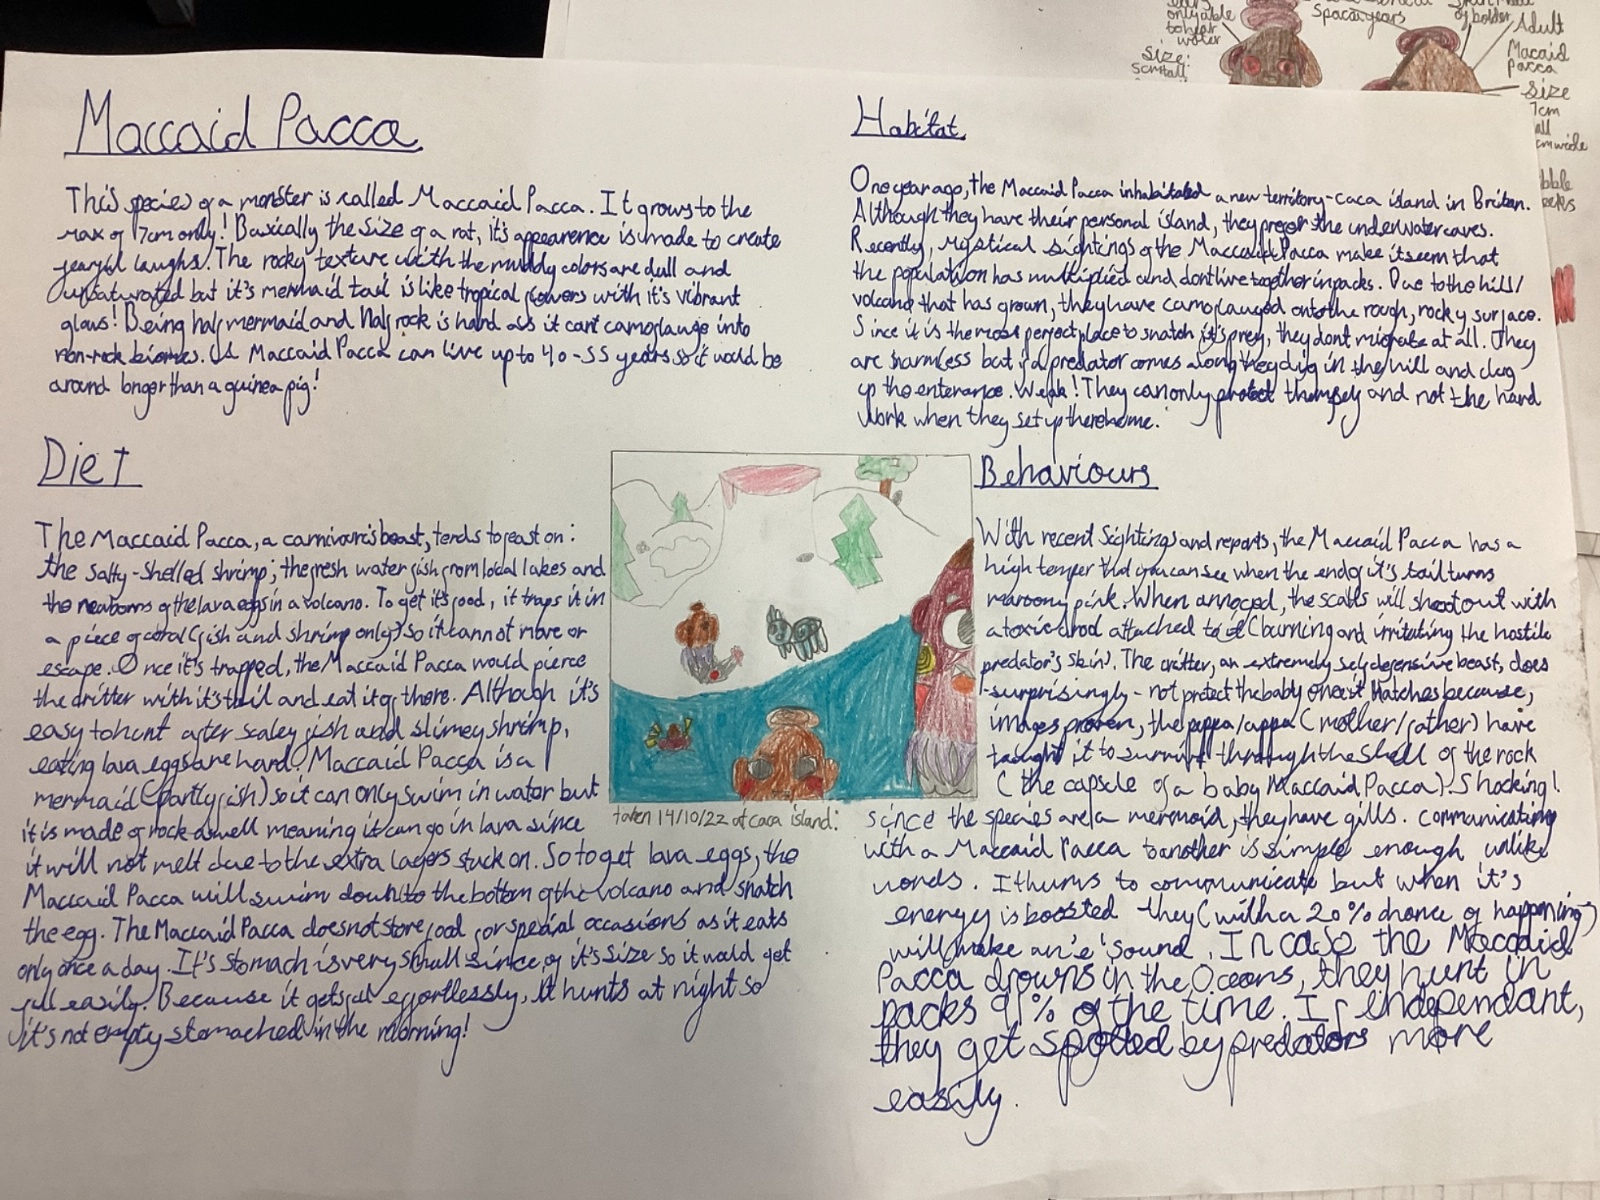 Maccaid Pacca
This species of a monster is called Maccaid Pacca. It grows to the
max of 7cm only! Basically the size of a rat, it's appearence is made to create
fearful laughs. The rocky texture with the muddy colors are dull and
unsaturated but it's mermaid tail is like tropical flowers with it's vibrant
glows! Being half mermaid and half rock is hard as it can't camoflauge into
non-rock biomes. A Maccaid Pacca can live up to 40-55 years so it would be
around longer than a guinea pig!
Diet
The Maccaid Pacca, a carnivouris beast, tends to feast on:
the salty-shelled shrimp; the fresh water fish from local lakes and
the newborns of the lava eggs in a volcano. To get it's food, it traps it in
a piece of coral (fish and shrimp only) so it cannot move or
escape. Once it's trapped, the Maccaid Pacca would pierce
the critter with it's tail and eat it of there. Although it's
easy to hunt after scaley fish and slimey shrimp,
eating lava eggs are hard! Maccaid Pacca is a
mermaid (partly fish) so it can only swim in water but
it is made of rock aswell meaning it can go in lava since
it will not melt due to the extra layers stuck on. So to get lava eggs, the
Maccaid Pacca will swim down to the bottom of the volcano and snatch
the egg. The Maccaid Pacca does not store food for special occasions as it eats
only once a day. It's stomach is very small since of it's size so it would get
full easily. Because it gets full effortlessly, it hunts at night so
it's not empty stomached in the morning!
taken 14/10/22 at caca island:
Habitat
One year ago, the Maccaid Pacca inhabitated a new territory-caca island in Britan.
Although they have their personal island, they prefer the underwater caves.
Recently, mystical sightings of the Maccaid Pacca make it seem that
the population has multiplied and dont live together in packs. Due to the hill/
volcano that has grown, they have camoflauged onto the rough, rocky surface.
Since it is the most perfect place to snatch it's prey, they dont migrate at all. They
are harmless but if a predator comes along they dig in the hill and clog
up the enterance. Weak! They can only protect themself and not the hard
work when they set up there home.
Behaviours
With recent sightings and reports, the Maccaid Pacca has a
high temper that you can see when the end of it's tail turns
maroony pink. When annoyed, the scales will shoot out with
a toxic acid attached to it (burning and irritating the hostile
predator's skin). The critter, an extremely self defensive beast, does
-surprisingly- not protect the baby once it hatches because,
images proven, the appa/appa (mother/father) have
taught it to survive through the shell of the rock
(the capsule of a baby Maccaid Pacca). Shocking!
since the species are a mermaid, they have gills. communicating
with a Maccaid Pacca to another is simple enough unlike
words. It hums to communicate but when it's
energy is boosted they (with a 20% chance of happening)
will make an 'e' sound. In case the Maccaid
Pacca drowns in the Oceans, they hunt in
packs 91% of the time. If independant,
they get spotted by predators more
easily.
only able
to hear
water
Size:
5cm tall
Spacca years
of bolder
Adult
Macaid
Pacca
Size
7cm